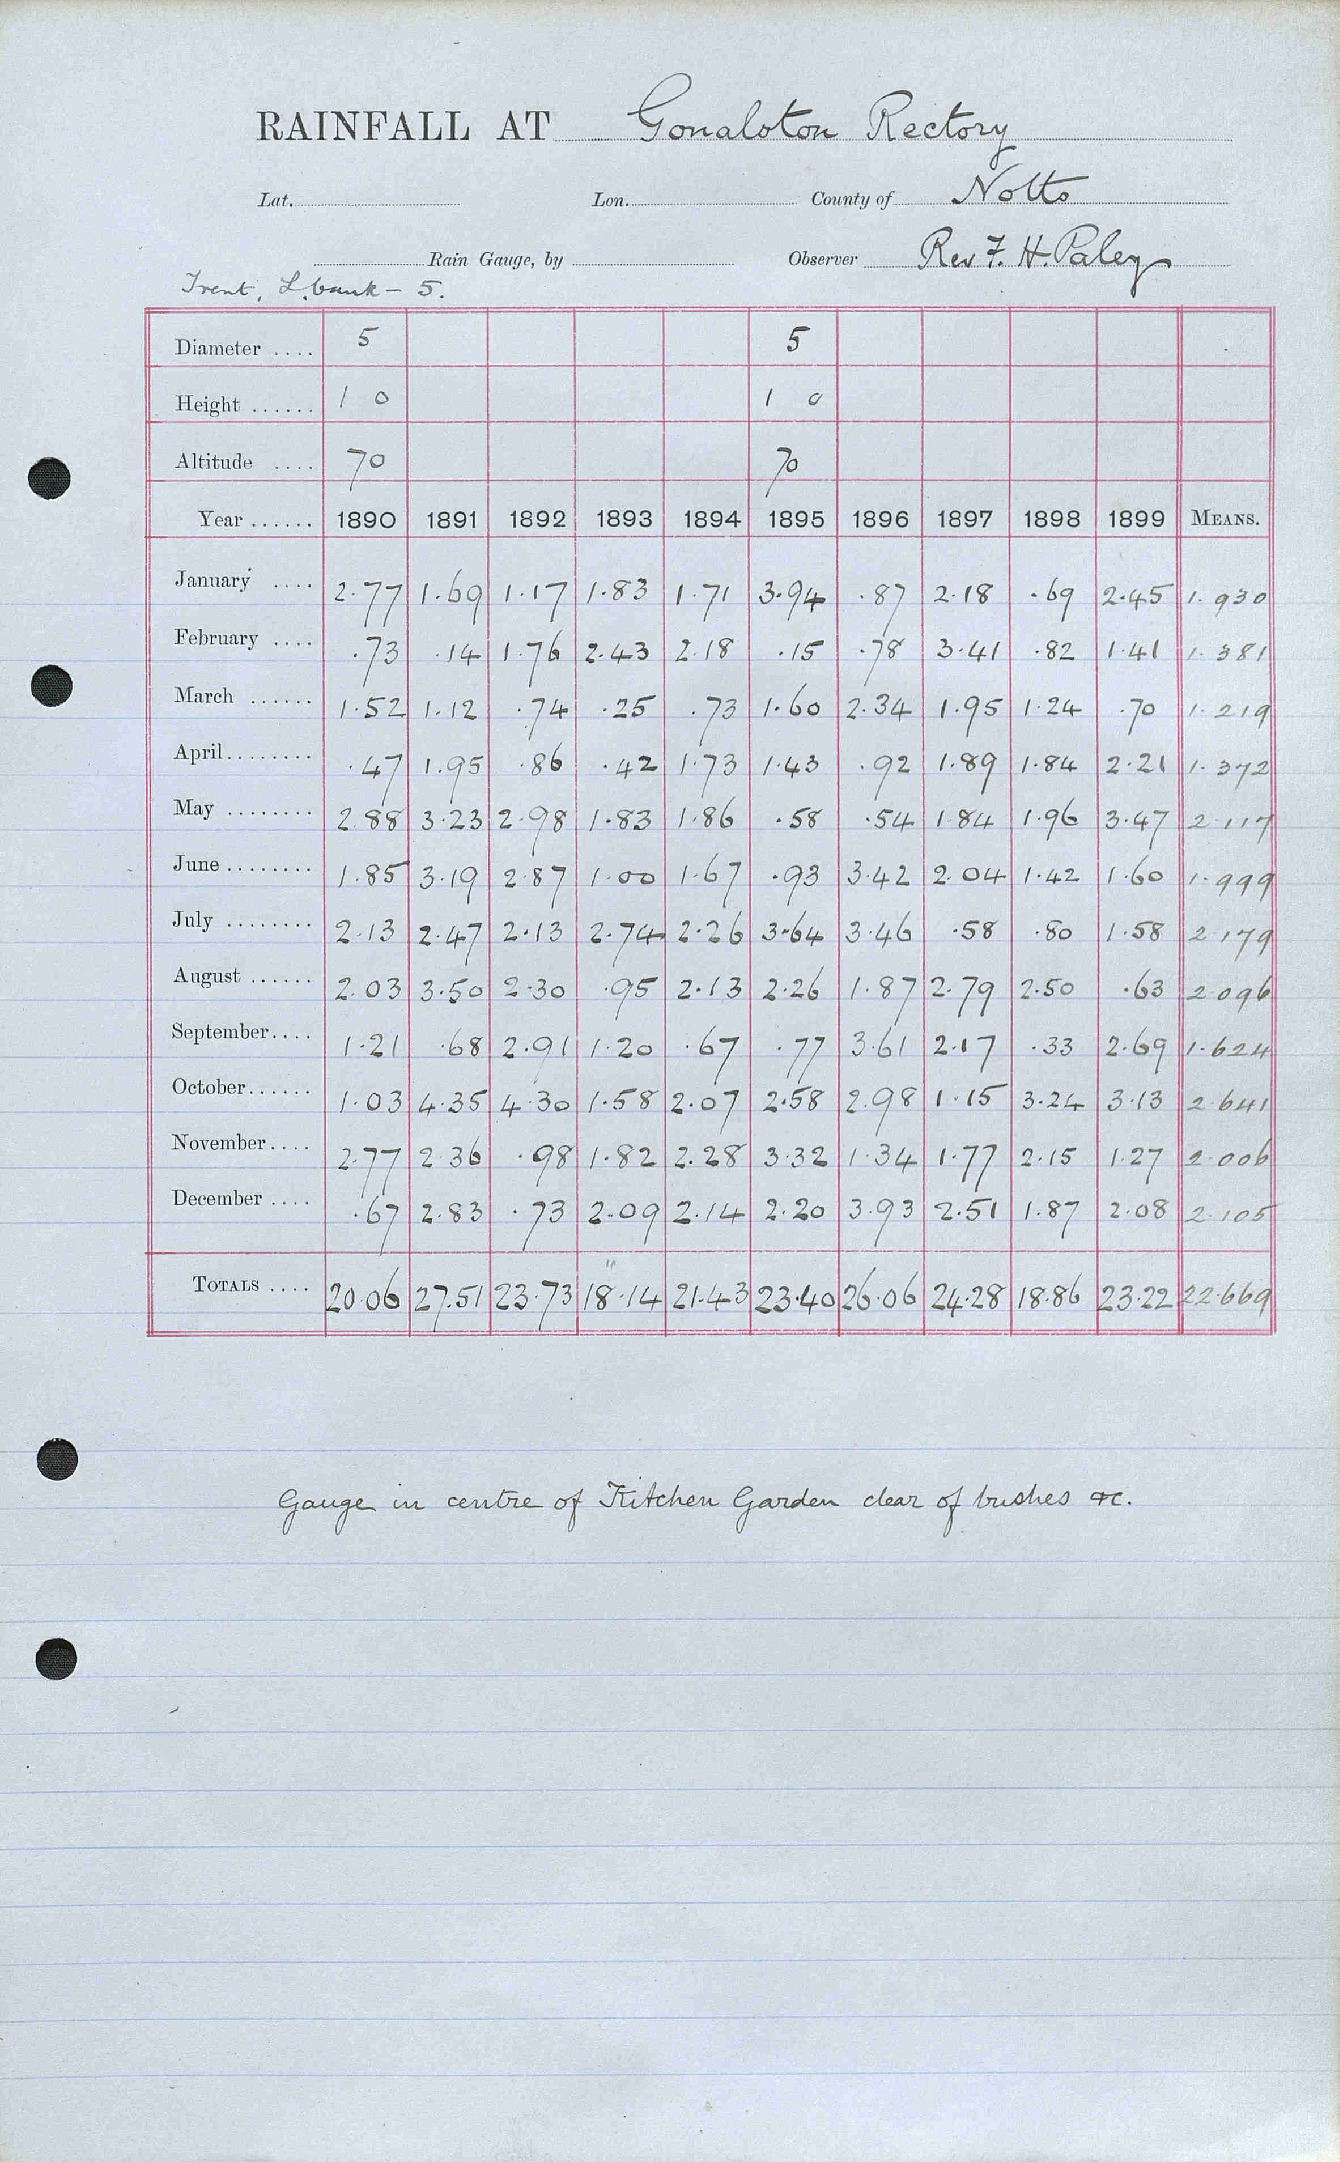 RAINFALL AT Gonalston Rectory
Lat. Lon. County of Notts
Rain Gauge, by Observer Rev F. H. Paley
Trent, L. bank - 5.
Diameter .... 5 5
Height ...... 1 0 1 0
Altitude .... 70 70
Year ...... 1890 1891 1892 1893 1894 1895 1896 1897 1898 1899 MEANS.
January .... 2.77 1.69 1.17 1.83 1.71 3.94 .87 2.18 .69 2.45 1.930
February .... .73 .14 1.76 2.43 2.18 .15 .78 3.41 .82 1.41 1.381
March ...... 1.52 1.12 .74 .25 .73 1.60 2.34 1.95 1.24 .70 1.219
April........ .47 1.95 .86 .42 1.73 1.43 .92 1.89 1.84 2.21 1.372
May ........ 2.88 3.23 2.98 1.83 1.86 .58 .54 1.84 1.96 3.47 2.117
June ........ 1.85 3.19 2.87 1.00 1.67 .93 3.42 2.04 1.42 1.60 1.999
July ........ 2.13 2.47 2.13 2.74 2.26 3.64 3.46 .58 .80 1.58 2.179
August ...... 2.03 3.50 2.30 .95 2.13 2.26 1.87 2.79 2.50 .63 2.096
September.... 1.21 .68 2.91 1.20 .67 .77 3.61 2.17 .33 2.69 1.624
October...... 1.03 4.35 4.30 1.58 2.07 2.58 2.98 1.15 3.24 3.13 2.641
November.... 2.77 2.36 .98 1.82 2.28 3.32 1.34 1.77 2.15 1.27 2.006
December .... .67 2.83 .73 2.09 2.14 2.20 3.93 2.51 1.87 2.08 2.105
TOTALS .... 20.06 27.51 23.73 18.14 21.43 23.40 26.06 24.28 18.86 23.22 22.669
Gauge in centre of Kitchen Garden clear of bushes &c.